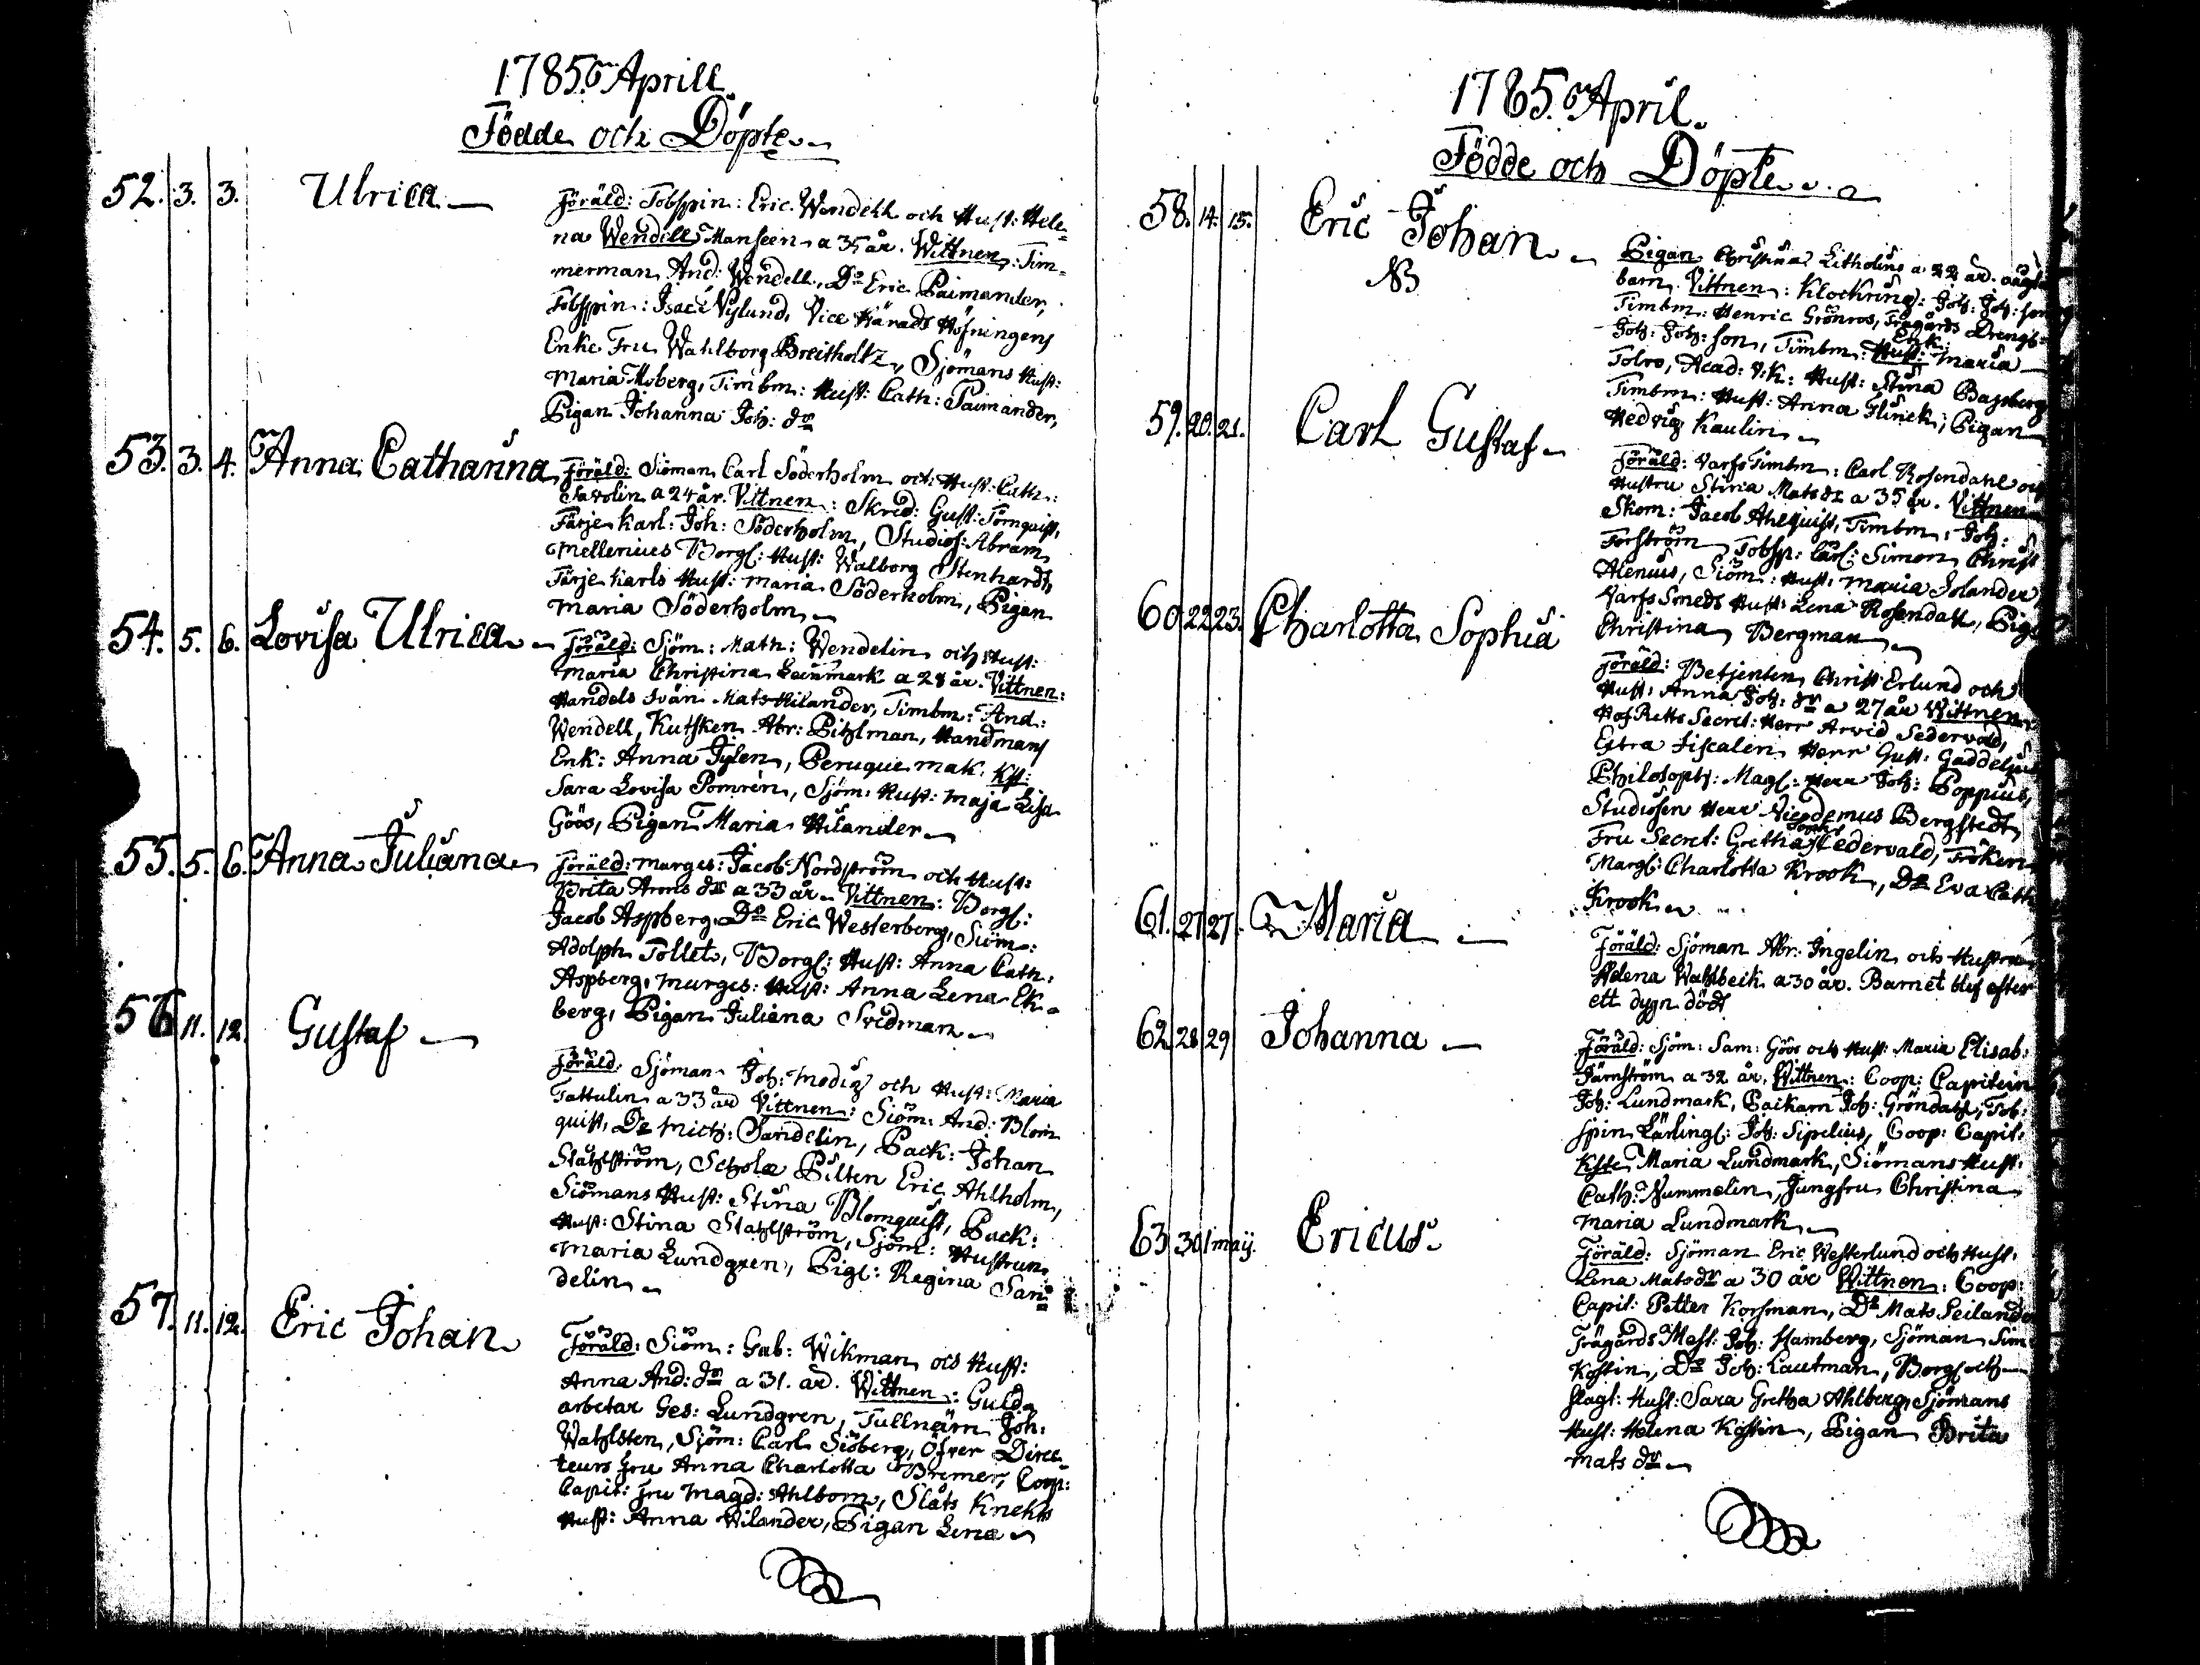 1785. Aprill.
Födde och Döpte
52. 3. 3. Ulrica
Föräld: Tobspin: Eric Wendell och Hust: Hele=
na Wendell Manseen a 35 år. Wittnen: Tim=
merman And: Wendell, Do Eric Paimander,
Tobspin: Isac Nylund, Vice Härads Höfningens
Enke Fru Wahlborg Breitholtz, Sjömans Hust:
Maria Moberg, Timbm: Hust: Cath: Paimander,
Pigan Johanna Joh: dr
53. 3. 4. Anna Catharina
Föräld: Siöman Carl Söderholm och Hust: Cath:
Savolin a 24 år. Vittnen: Skred: Gust: Törnquist,
Färje karl: Joh: Söderholm, Studios: Abram
Mellenius Borgs: Hust: Walborg Stenhardt,
Färje karls Hust: Maria Söderholm, Pigan
Maria Söderholm
54. 5. 6. Lovisa Ulrica
Föräld: Sjöm: Math: Wendelin och Hust:
Maria Christina Leinmark a 28 år. Vittnen:
Handels Svän Mats Hilander, Timbm: And:
Wendell, Kutsken Abr: Pihlman, Handmans
Enk: Anna Tylen, Peruque mak: Kst:
Sara Lovisa Pomrén, Sjöm: Hust: Maja Lisa
Göös, Pigan Maria Hilander
55. 5. 6. Anna Juliana
Föräld: Marges: Jacob Nordström och Hust:
Brita Arons dr a 33 år. Vittnen: Borgs:
Jacob Aspberg, Do Eric Westerberg, Siöm:
Adolph Tollet, Borgs: Hust: Anna Cath:
Aspberg, Murges: Hust: Anna Lena Ek=
berg, Pigan Juliana Svedman
56. 11. 12. Gustaf
Föräld: Sjöman Joh: Modig och Hust: Maria
Tattulin a 33 år Vittnen: Siöm: And: Blom
quist, Do Mich: Sandelin, Pack: Johan
Stahlström, Schola Pilten Eric Ahlholm,
Siömans Hust: Stina Blomquist, Pack:
Hust: Stina Stahlström, Sjöm: Hustrun
Maria Lundgren, Pigs: Regina San=
delin
57. 11. 12. Eric Johan
Föräld: Siöm: Gab: Wikman och Hust:
Anna And: dr a 31. år. Wittnen: Guld
arbetar Ges: Lundgren, Tullnärn Joh:
Wahlsten, Sjöm: Carl Siöberg, Öfver Direc=
teurs fru Anna Charlotta Bremer, Coop:
Capit: fru Magd: Ahlbom, Slåts Knekts
Hust: Anna Wilander, Pigan Lena
1785. April.
Födde och Döpte
58. 14. 15. Eric Johan
NB
Pigan Christina Litholins a 22 år. oägta
barn. Vittnen: Klockring: Joh: Joh: son
Timbm: Henric Grönros, Trägårds Drengs
Joh: Joh: son, Timbm: Enk: Maria
Tolro, Acad: V:K: Hust: Stina Bagsberg
Timbm: Hust: Anna Flinck, Pigan
Hedvig Kaulin
59. 20. 21. Carl Gustaf
Föräld: Varfs Timbm: Carl Rosendahl och
Hustru Stina Mats dr a 35 år. Vittnen
Skom: Jacob Ahlquist, Timbm: Joh:
Forström Tobsp: Carl: Simon Christ
Alenius, Siöm: Hust: Maria Solander,
Varfs Smeds Hust: Lena Rosendahl, Pig
Christina Bergman
60. 22. 23. Charlotta Sophia
Föräld: Betjenten Christ: Erlund och
Hust: Anna Joh: dr a 27 år Wittnen
Hof Retts Secret: Herr Arvid Sedervald,
Extra Fiscalen Herr Gust: Gaddelius
Philosoph: Mags: Herr Joh: Poppius,
Studiosen Herr Nicodemus Bergstedt,
Fru Secret: Gretha Sophia Sedervald, Fröken
Margs: Charlotta Krook, Do Eva Cath
Krook
61. 27 27. Maria
Föräld: Sjöman Abr: Ingelin och Hustru
Helena Wahlbeck a 30 år. Barnet blef efter
ett dygn dödt
62. 28 29 Johanna
Föräld: Sjöm: Sam: Göös och Hust: Maria Elisab:
Järnström a 32 år. Wittnen: Coop: Capitein
Joh: Lundmark, Packarn Joh: Gröndahl, Tob:
spin Lärlings: Joh: Sipelius, Coop: Capit:
Kste Maria Lundmark, Siömans Hust:
Cath: Nummelin, Jungfru Christina
Maria Lundmark
63 30 1 maij. Ericus
Föräld: Sjöman Eric Westerlund och Hust:
Lena Mats dr a 30 år Wittnen: Coop:
Capit: Petter Korsman, Do Mats Seilander
Trägårds Mest: Joh: Hamberg, Sjöman Sim
Kostin, Do Joh: Lautman, Borgs och
slagt: Hust: Sara Gretha Ahlberg, Sjömans
Hust: Helena Kostin, Pigan Brita
Mats dr